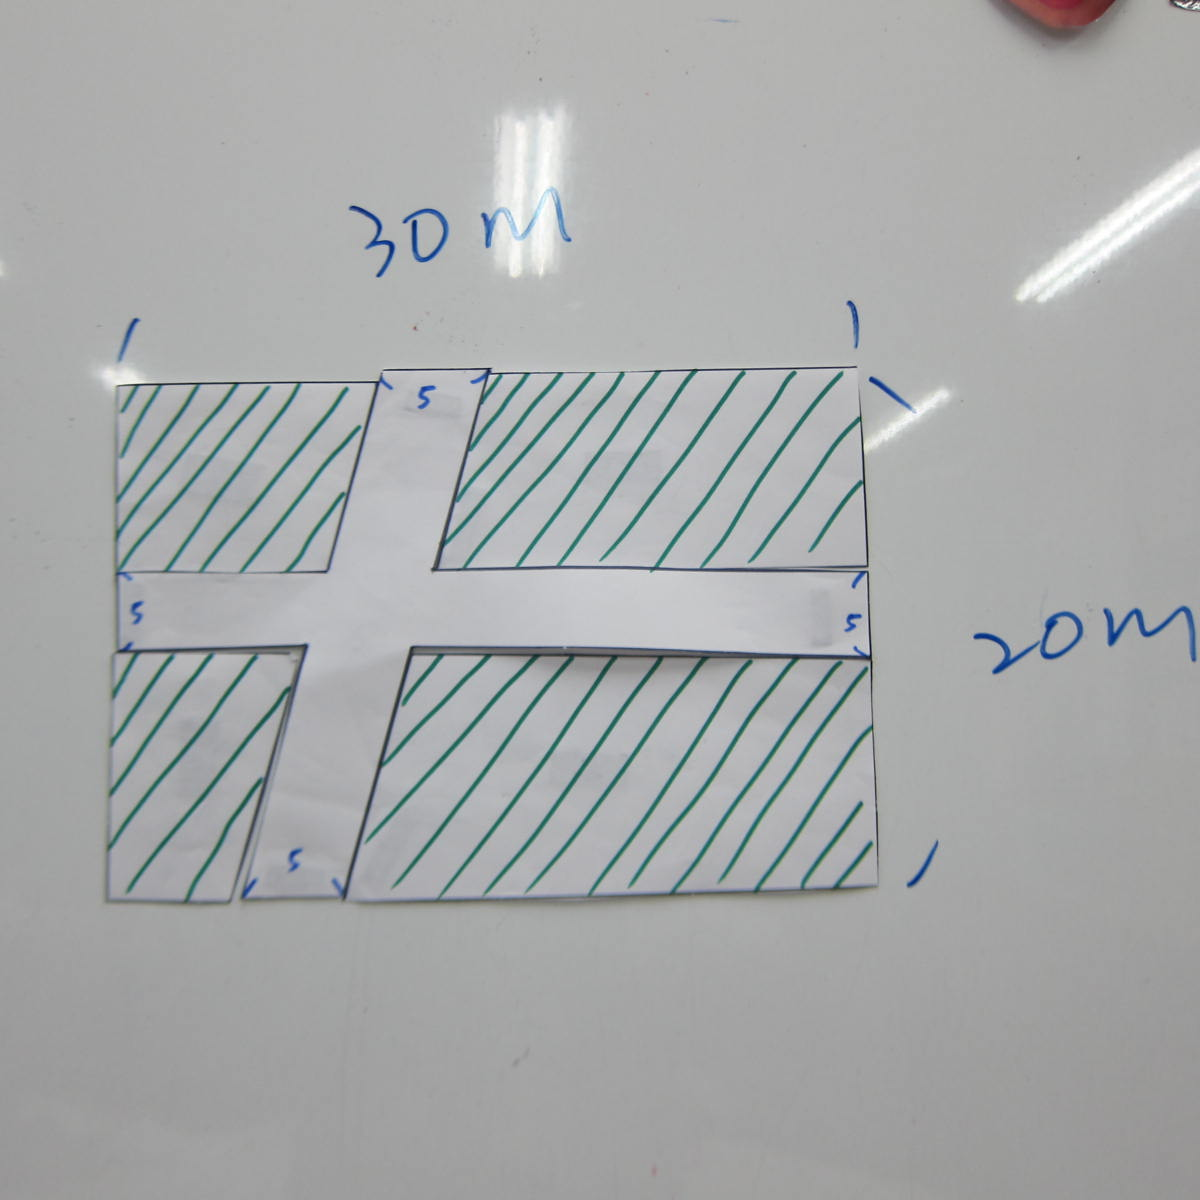 30m
5
5
5
20m
5